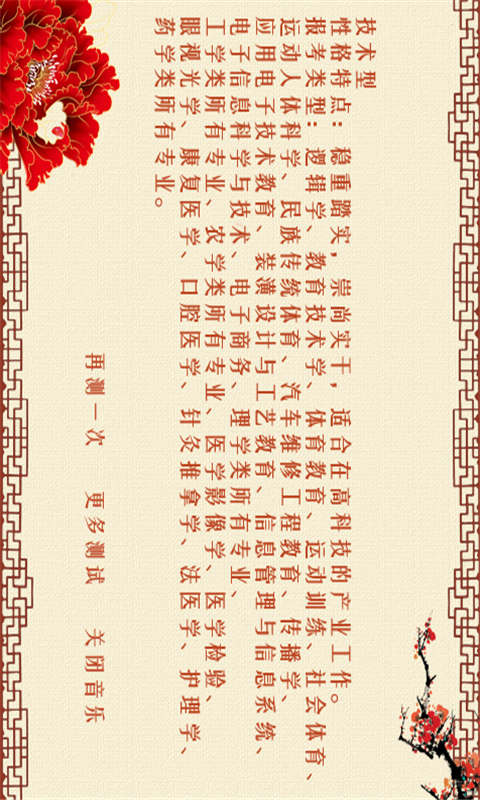 技术型
性格特点：稳重踏实，崇尚实干，适合在高科技的产业工作。
报考类型：逻辑学、教育技术学、体育教育、运动训练、社会体育、
运动人体科学、民族传统体育、汽车维修工程教育、传播学、
应用电子技术教育、装潢设计与工艺教育、信息管理与信息系统、
电子信息科学与技术、电子商务、理学类所有专业、
工学类所有专业、农学类所有专业、医学影像学、医学检验、
眼视光学、康复医学、口腔医学、针灸推拿学、法医学、护理学、
药学类所有专业。
再测一次 更多测试 关闭音乐